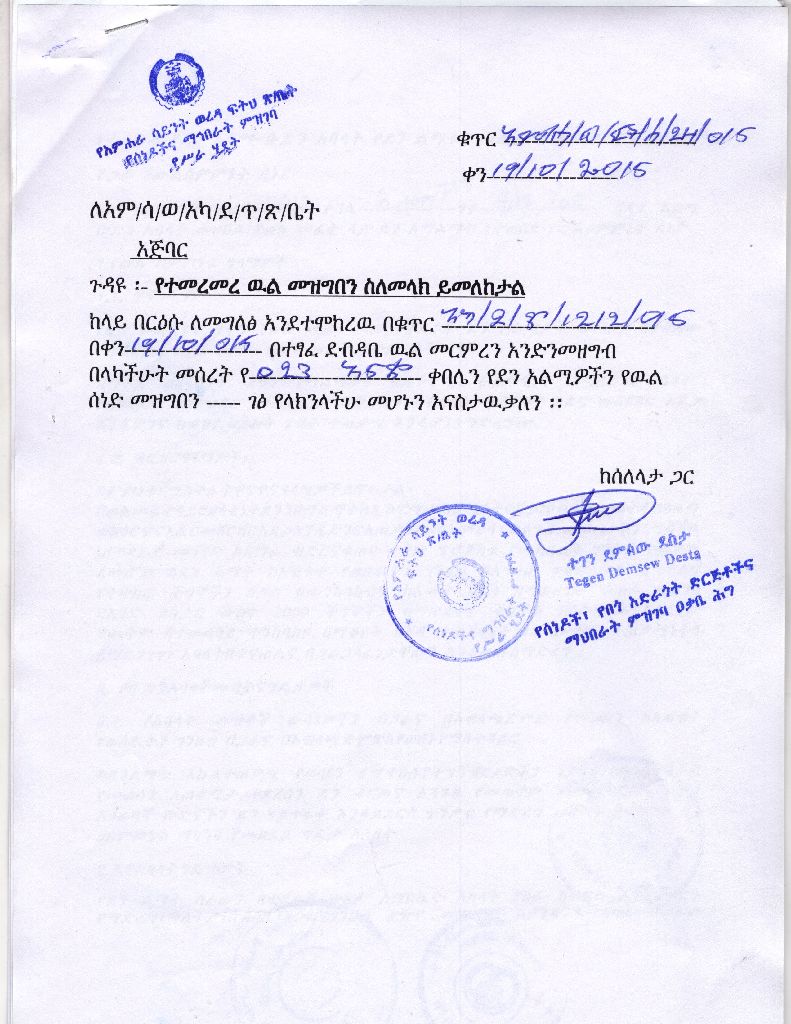 የአምሐራ ሳይንት ወረዳ ፍትህ ጽ/ቤት
የሰነዶችና ማኅበራት ምዝገባ
የሥራ ሂደት
ቁጥር 015
ቀን 19/10/2015
ለአም/ሳ/ወ/አካ/ደ/ጥ/ጽ/ቤት
አጅባር
ጉዳዩ ፡- የተመረመረ ዉል መዝግበን ስለመላክ ይመለከታል
ከላይ በርዕሱ ለመግለፅ እንደተሞከረዉ በቁጥር
በቀን 19/10/015 በተፃፈ ደብዳቤ ዉል መርምረን እንድንመዘግብ
በላካችሁት መሰረት የ 023 ቀበሌን የደን አልሚዎችን የዉል
ሰነድ መዝግበን ----- ገፅ የላክንላችሁ መሆኑን እናስታዉቃለን ፡፡
ከሰለላታ ጋር
የአምሐራ ሳይንት ወረዳ ፍትህ ጽ/ቤት
የሰነዶችና ማኅበራት የሥራ ሂደት
ተገን ደምሰው ደስታ
Tegen Demsew Desta
የሰነዶች፣ የበጎ አድራጎት ድርጅቶችና
ማህበራት ምዝገባ ዐቃቤ ሕግ